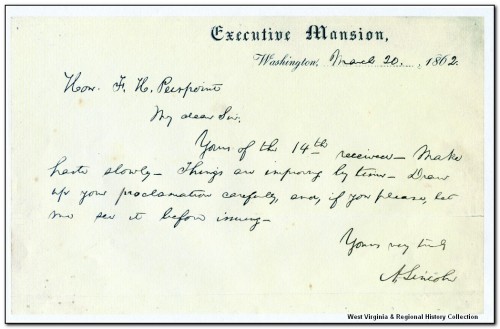 Executive Mansion,
Washington, March 20, 1862.
Hon. F. H. Peirpoint
My dear Sir.
Yours of the 14th received— Make
haste slowly— Things are improving by time— Draw
up your proclamation carefully, and, if you please, let
me see it before issuing—
Yours very truly
A. Lincoln
West Virginia & Regional History Collection